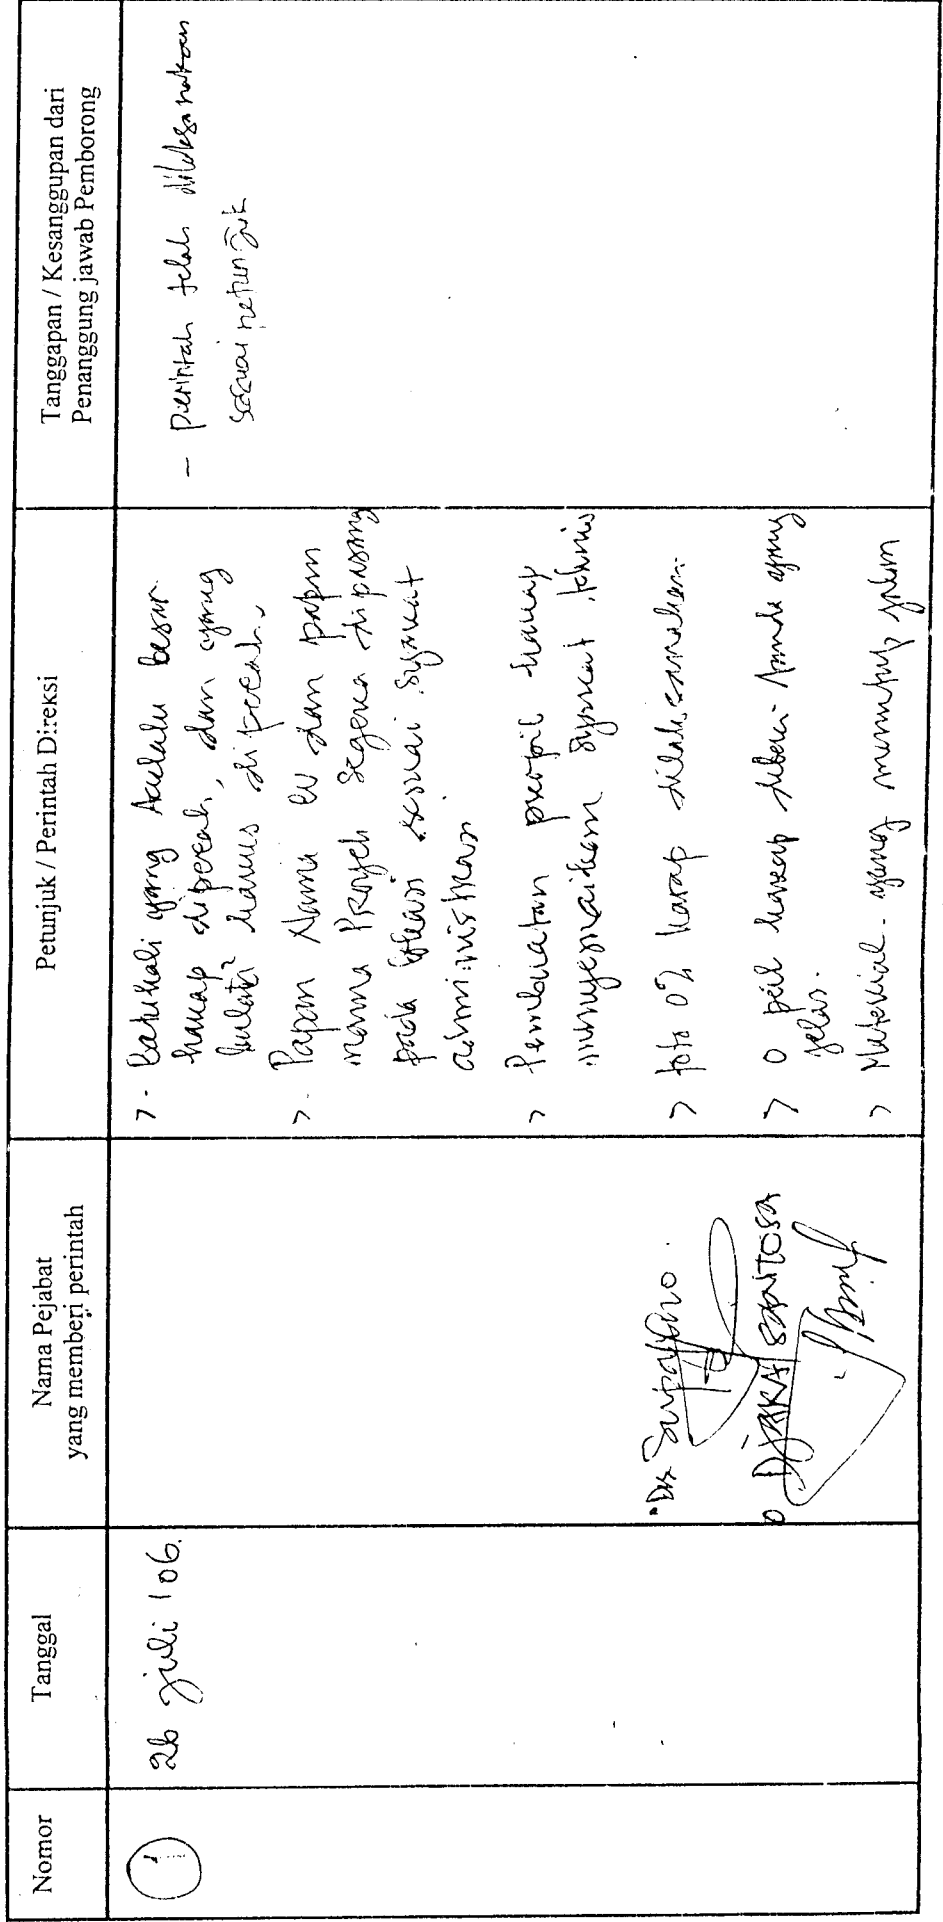 Nomor
Tanggal
Nama Pejabat
yang memberi perintah
Petunjuk / Perintah Direksi
Tanggapan / Kesanggupan dari
Penanggung jawab Pemborong
1
26 juli '06.
Drs
O DJAKA SANTOSA
> - Batukali yang terlalu besar
harap dipecah, dan yang
bulat² harus dipecah.
> - Papan Nama CV dan papan
nama Proyek segera dipasang
pada lokasi sesuai syarat
administrasi
> Pembuatan propil harap
menyesuaikan syarat tehnis
> foto 0% harap dilaksanakan.
> O peil harap diberi tanda yang
jelas.
> Material - yang menutup jalan
- perintah telah dilaksanakan
sesuai petunjuk